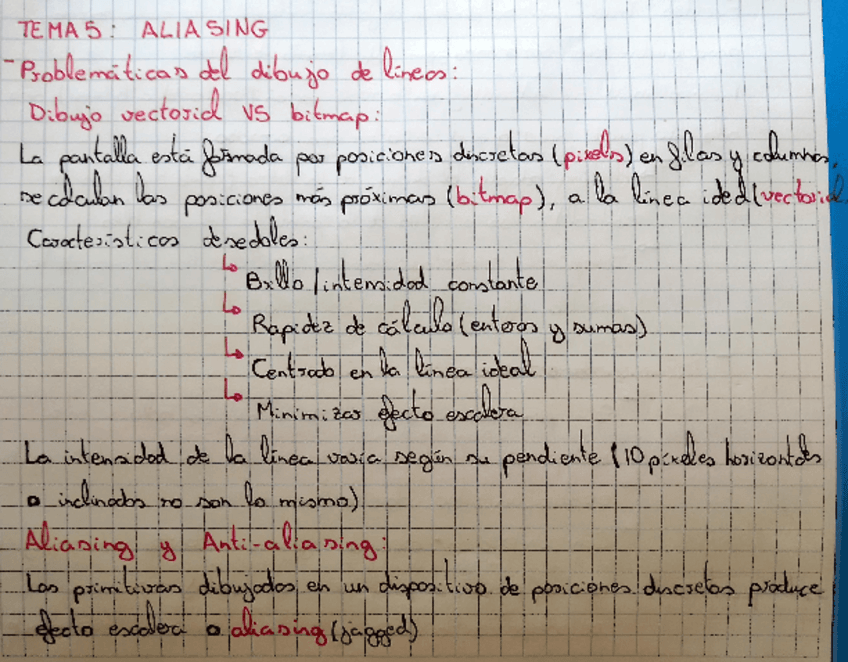 TEMA 5: ALIASING
- Problemáticas del dibujo de líneas:
Dibujo vectorial VS bitmap:
La pantalla está formada por posiciones discretas (pixels) en filas y columnas,
se calculan las posiciones más próximas (bitmap), a la línea ideal (vectorial
Características deseables:
↳ Brillo/intensidad constante
↳ Rapidez de cálculo (enteros y sumas)
↳ Centrado en la línea ideal
↳ Minimizar efecto escalera
La intensidad de la línea varia según su pendiente (10 píxeles horizontales
o inclinados no son lo mismo)
Aliasing y Anti-aliasing:
Las primitivas dibujadas en un dispositivo de posiciones discretas produce
efecto escalera o aliasing (jagged)